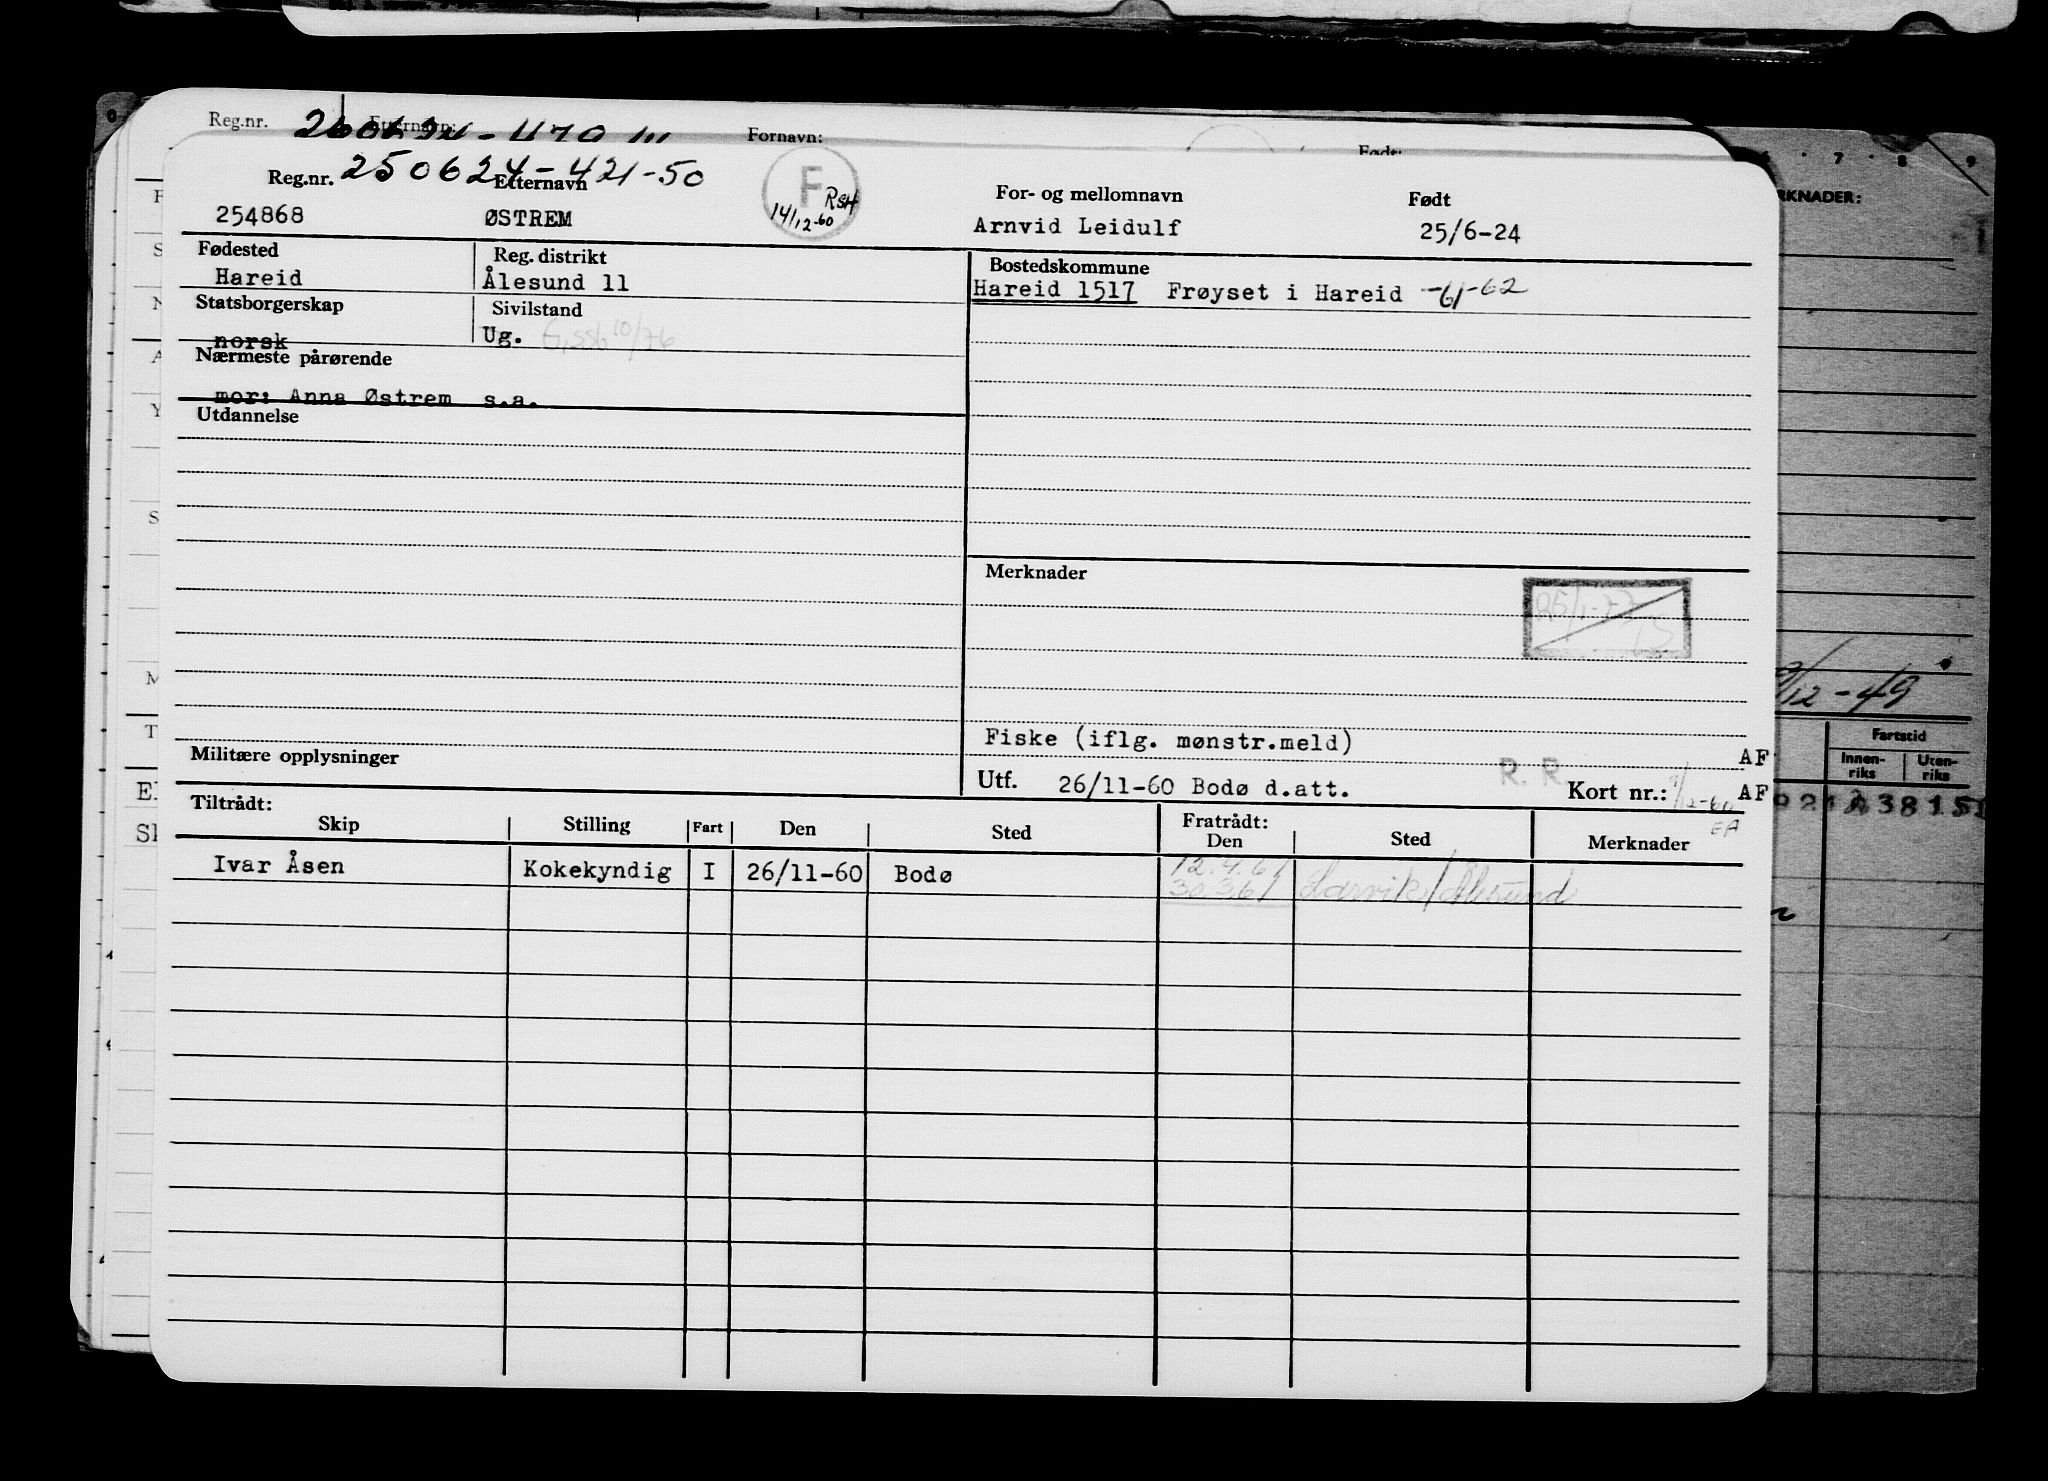 Reg.nr. Etternavn: Fornavn: Født:
Reg.nr. 250624-421-50 Etternavn For- og mellomnavn Født
254868 ØSTREM F RSH 14/12-60 Arnvid Leidulf 25/6-24
Fødested Reg. distrikt Bostedskommune
Hareid Ålesund 11 Hareid 1517 Frøyset i Hareid -61-62
Statsborgerskap Sivilstand
norsk Ug. 10/76
Nærmeste pårørende
mor: Anna Østrem s.a.
Utdannelse
Merknader
Fiske (iflg. mønstr.meld) AF
Militære opplysninger Utf. 26/11-60 Bodø d.att. R. R. Kort nr.: AF
EA
Tiltrådt: Fratrådt:
Skip Stilling Fart Den Sted Den Sted Merknader
Ivar Åsen Kokekyndig I 26/11-60 Bodø 12.4.61
30.3.61 Larvik/Ålesund
6 7 8 9
RKNADER:
/12-49
Fartstid
Innen-riks Uten-riks